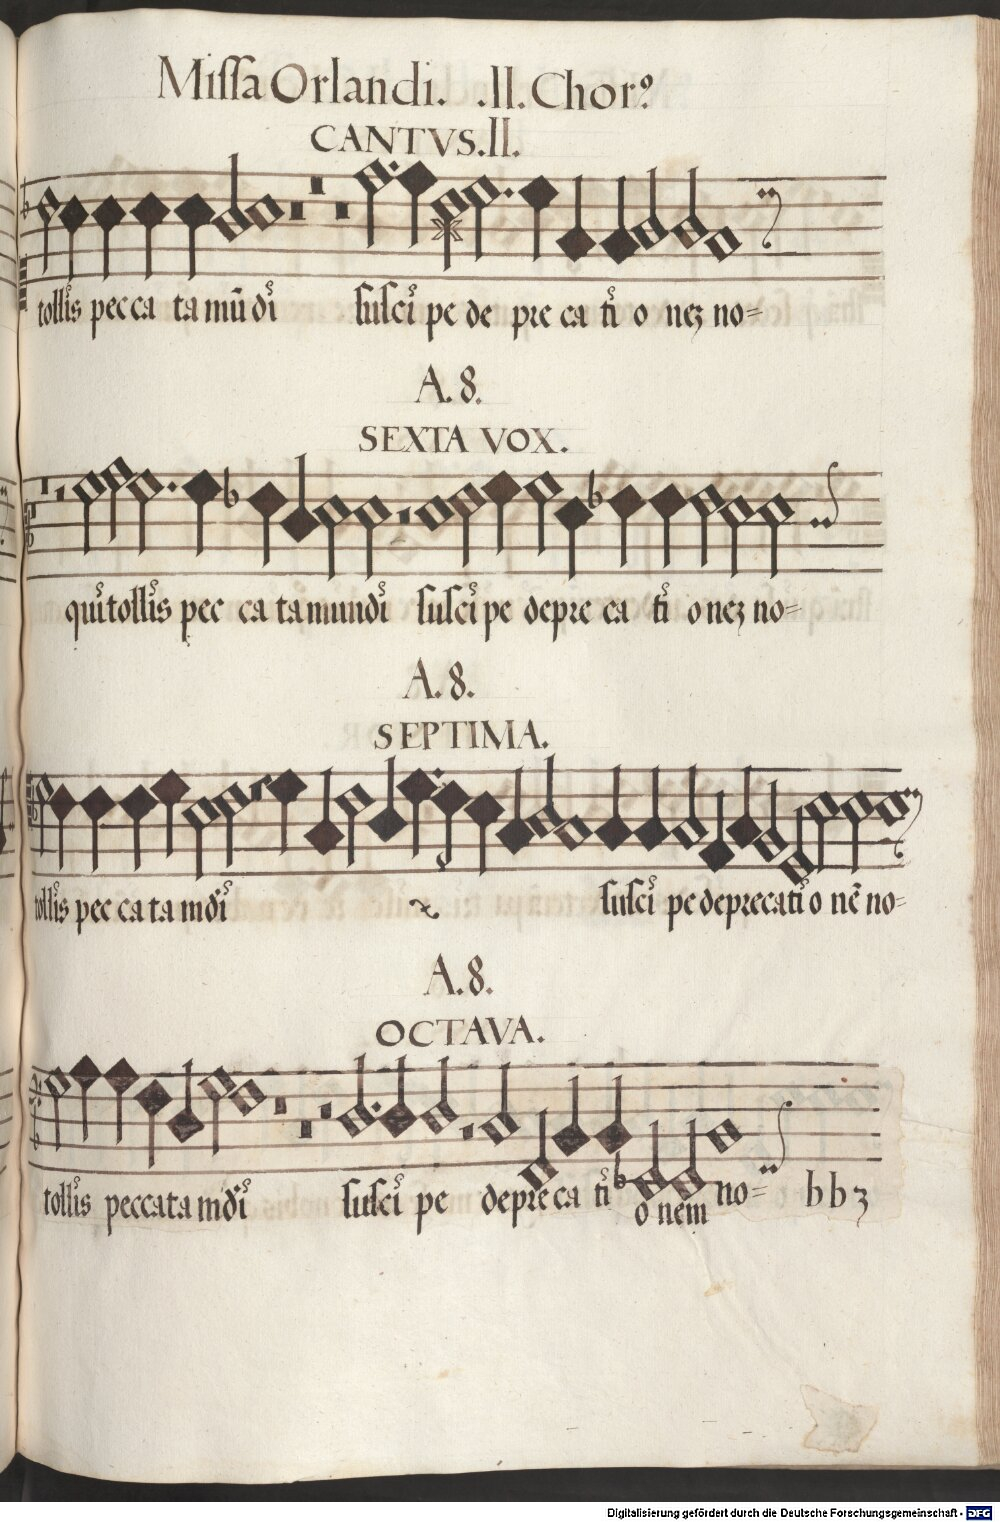 Missa Orlandi. .II. Chorꝰ
CANTVS.II.
tollis pec ca ta mū di suscipe de pre ca ti o neʒ no=
A. 8.
SEXTA VOX.
qui tollis pec ca ta mundi suscipe depre ca ti o neʒ no=
A. 8.
SEPTIMA.
tollis pec ca ta mdi suscipe deprecatio nē no=
A. 8.
OCTAVA.
tollis peccata mdi suscipe depreca ti o nem no= b b ʒ
Digitalisierung gefördert durch die Deutsche Forschungsgemeinschaft - DFG